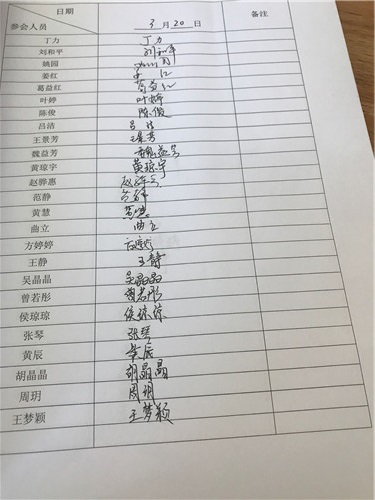 日期 备注
参会人员 3月20日
丁力 丁力
刘和平 刘和平
姚园
姜红 姜 红
葛益红 葛益红
叶婷 叶婷
陈俊 陈俊
吕洁 吕洁
王景芳 王景芳
魏益芳 魏益芳
黄琼宇 黄琼宇
赵骅惠
范静 范静
黄慧 黄慧
曲立 曲立
方婷婷 方婷婷
王静 王静
吴晶晶 吴晶晶
曾若彤 曾若彤
侯琼琼 侯琼琼
张琴 张琴
黄辰 黄辰
胡晶晶 胡晶晶
周玥 周玥
王梦颖 王梦颖